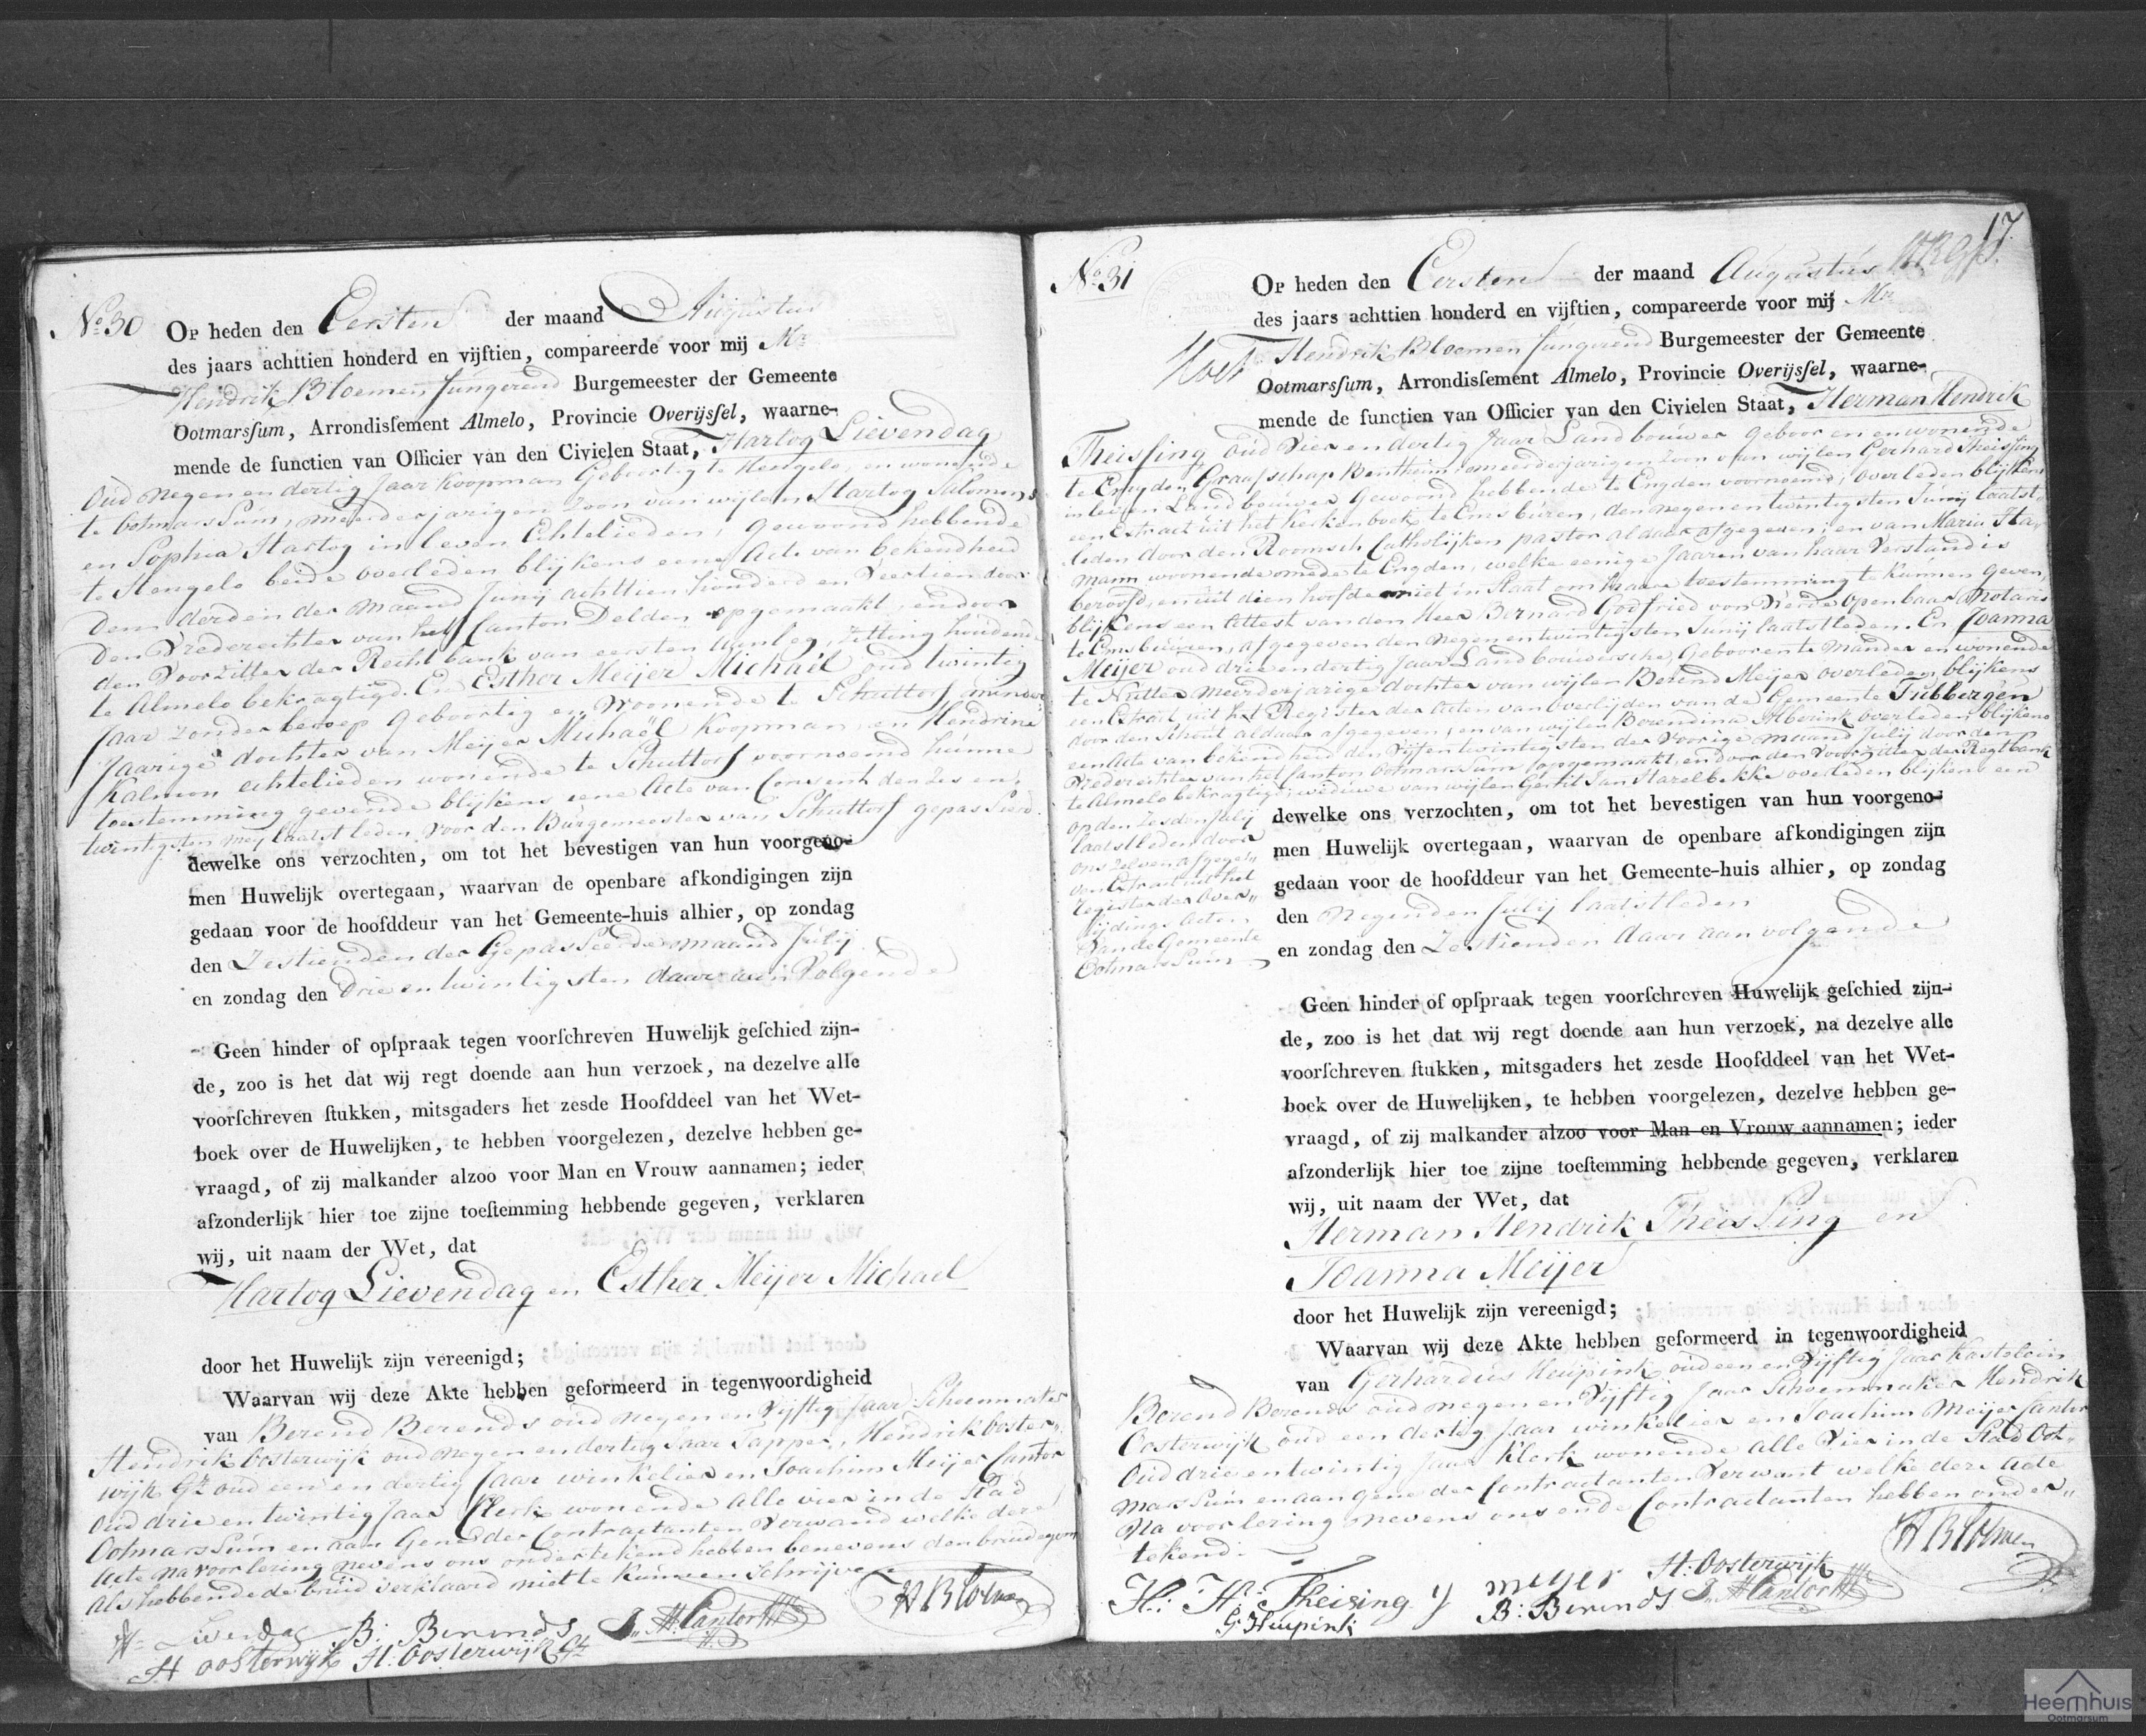 No. 30 Op heden den Eersten der maand Augustus
des jaars achttien honderd en vijftien, compareerde voor mij Mr.
Hendrik Bloemen fungerend Burgemeester der Gemeente
Ootmarsſum, Arrondisſement Almelo, Provincie Overijsſel, waarne-
mende de functien van Officier van den Civielen Staat, Hartog Lievendag
Oud negen en dertig Jaar Koopman Geboortig te Hengelo, en wonende
te Ootmarssum, meerderjarigen Zoon van wijlen Hartog Salomons
en Sophia Hartog in leven Echtelieden, gewoond hebbende
te Hengelo beide overleden blijkens eene Acte van bekendheid
den derden der maand Junij achttien honderd en Veertien door
den Vrederechter van het Canton Delden opgemaakt, en door
den Voorzitter der Rechtbank van eersten Aanleg, Zitting houdende
te Almelo bekragtigd. En Esther Meijer Michaël oud twintig
Jaar zonder beroep Geboortig en Woonende te Schuttorf minder
Jaarige dochter van Meijer Michaël Koopman en Hendrine
Kalmon echtelieden wonende te Schuttorf voornoemd hunne
toestemming gevende blijkens eene Acte van Consent den Zes en
twintigsten Meij laatstleden voor den Burgemeester van Schuttorf gepasseerd.
dewelke ons verzochten, om tot het bevestigen van hun voorgeno-
men Huwelijk overtegaan, waarvan de openbare afkondigingen zijn
gedaan voor de hoofddeur van het Gemeente-huis alhier, op zondag
den Zestienden der Gepasseerde maand Julij
en zondag den drie en twintigsten daar aan Volgende
Geen hinder of opſpraak tegen voorſchreven Huwelijk geſchied zijn-
de, zoo is het dat wij regt doende aan hun verzoek, na dezelve alle
voorſchreven ſtukken, mitsgaders het zesde Hoofddeel van het Wet-
boek over de Huwelijken, te hebben voorgelezen, dezelve hebben ge-
vraagd, of zij malkander alzoo voor Man en Vrouw aannamen; ieder
afzonderlijk hier toe zijne toeſtemming hebbende gegeven, verklaren
wij, uit naam der Wet, dat
Hartog Lievendag en Esther Meijer Michael
door het Huwelijk zijn vereenigd;
Waarvan wij deze Akte hebben geformeerd in tegenwoordigheid
van Berend Berends oud negen en Vijftig Jaar Schoenmaker
Hendrik Oosterwijk oud negen en dertig Jaar Tapper, Hendrik Ooster„
wijk Gz oud een en dertig Jaar winkelier en Joachim Meijer Cantor
Oud drie en twintig Jaar Klerk wonende alle vier in de Stad
Ootmarssum en aan Gene der Contractanten Verwand welke deze
Acte na voorlezing nevens ons ondertekend hebben benevens den bruidegom
als hebbende de bruid verklaard niet te kunnen Schrijven
H Bloemen
H= Liwendag B: Berends J.. M. Cantor
H oosterwijk H: Oosterwijk Gz
17
No. 31 Op heden den Eersten der maand Augustus
des jaars achttien honderd en vijftien, compareerde voor mij Mr.
Hendrik Bloemen fungerend Burgemeester der Gemeente
Ootmarsſum, Arrondisſement Almelo, Provincie Overijsſel, waarne-
mende de functien van Officier van den Civielen Staat, Herman Hendrik
Theissing Oud Vier en dertig Jaar Landbouwer geboren en wonende
te Engden Graafschap Bentheim, meerderjarigen Zoon van wijlen Gerhard Theissing
in leven Landbouwer gewoond hebbende te Engden voornoemd, overleden blijkens
een Extract uit het Kerkenboek te Emsburen, den negen en twintigsten Junij laatst
leden door den Roomsch Catholijken pastor aldaar afgegeven, en van Maria Har
mann woonende mede te Engden, welke eenige Jaaren van haar Verstand is
beroofd, en uit dien hoofde niet in Staat om haare toestemming te kunnen geven,
blijkens een Attest van den Heer Bernard Godfried von Verde Openbaar Notaris
te Emsburen, afgegeven den negen en twintigsten Junij laatstleden. En Joanna
Meijer oud drie en dertig Jaar Landbouwersche, Gebooren te Mander en wonende
te Nutter meerderjarige dochter van wijlen Berend Meijer overleden blijkens
een Extract uit het Register der Acten van Overlijden van de Gemeente Tubbergen
door den Schout aldaar afgegeven, en van wijlen Berendina Alberink overleden, blijkens
een Acte van bekendheid den Vijfentwintigsten der Voorige maand Julij door den
Vrederechter van het Canton Ootmarssum opgemaakt, en door den Voorzitter der Regtbank
te Almelo bekragtigd, weduwe van wijlen Gerrit Jan Hazelbekke overleden blijkens een
op den Zesden Julij
laatstleden door
ons zelven afgege„
ven Extract uit het
Register der Over„
lijdings Acten
van de Gemeente
Ootmarssum
dewelke ons verzochten, om tot het bevestigen van hun voorgeno-
men Huwelijk overtegaan, waarvan de openbare afkondigingen zijn
gedaan voor de hoofddeur van het Gemeente-huis alhier, op zondag
den Negenden Julij laatstleden
en zondag den Zestienden daar aan volgende
Geen hinder of opſpraak tegen voorſchreven Huwelijk geſchied zijn-
de, zoo is het dat wij regt doende aan hun verzoek, na dezelve alle
voorſchreven ſtukken, mitsgaders het zesde Hoofddeel van het Wet-
boek over de Huwelijken, te hebben voorgelezen, dezelve hebben ge-
vraagd, of zij malkander alzoo voor Man en Vrouw aannamen; ieder
afzonderlijk hier toe zijne toeſtemming hebbende gegeven, verklaren
wij, uit naam der Wet, dat
Herman Hendrik Theissing en
Joanna Meijer
door het Huwelijk zijn vereenigd;
Waarvan wij deze Akte hebben geformeerd in tegenwoordigheid
van Gerhardus Heupink oud een en Vijftig Jaar Kastelein
Berend Berends oud negen en Vijftig Jaar Schoenmaker Hendrik
Oosterwijk oud een dertig Jaar winkelier en Joachim Meijer Cantor
Oud drie en twintig Jaar Klerk wonende alle Vier in de Stad Oot„
marssum en aan gene der Contractanten Verwant welke deze Acte
Na voorlezing nevens ons en de Contractanten hebben onder„
tekend.
H Bloemen
H: H: Theising J meyer H: Oosterwijk
G: Heupink B: Berends J.. M Cantor
Heemhuis
Ootmarsum